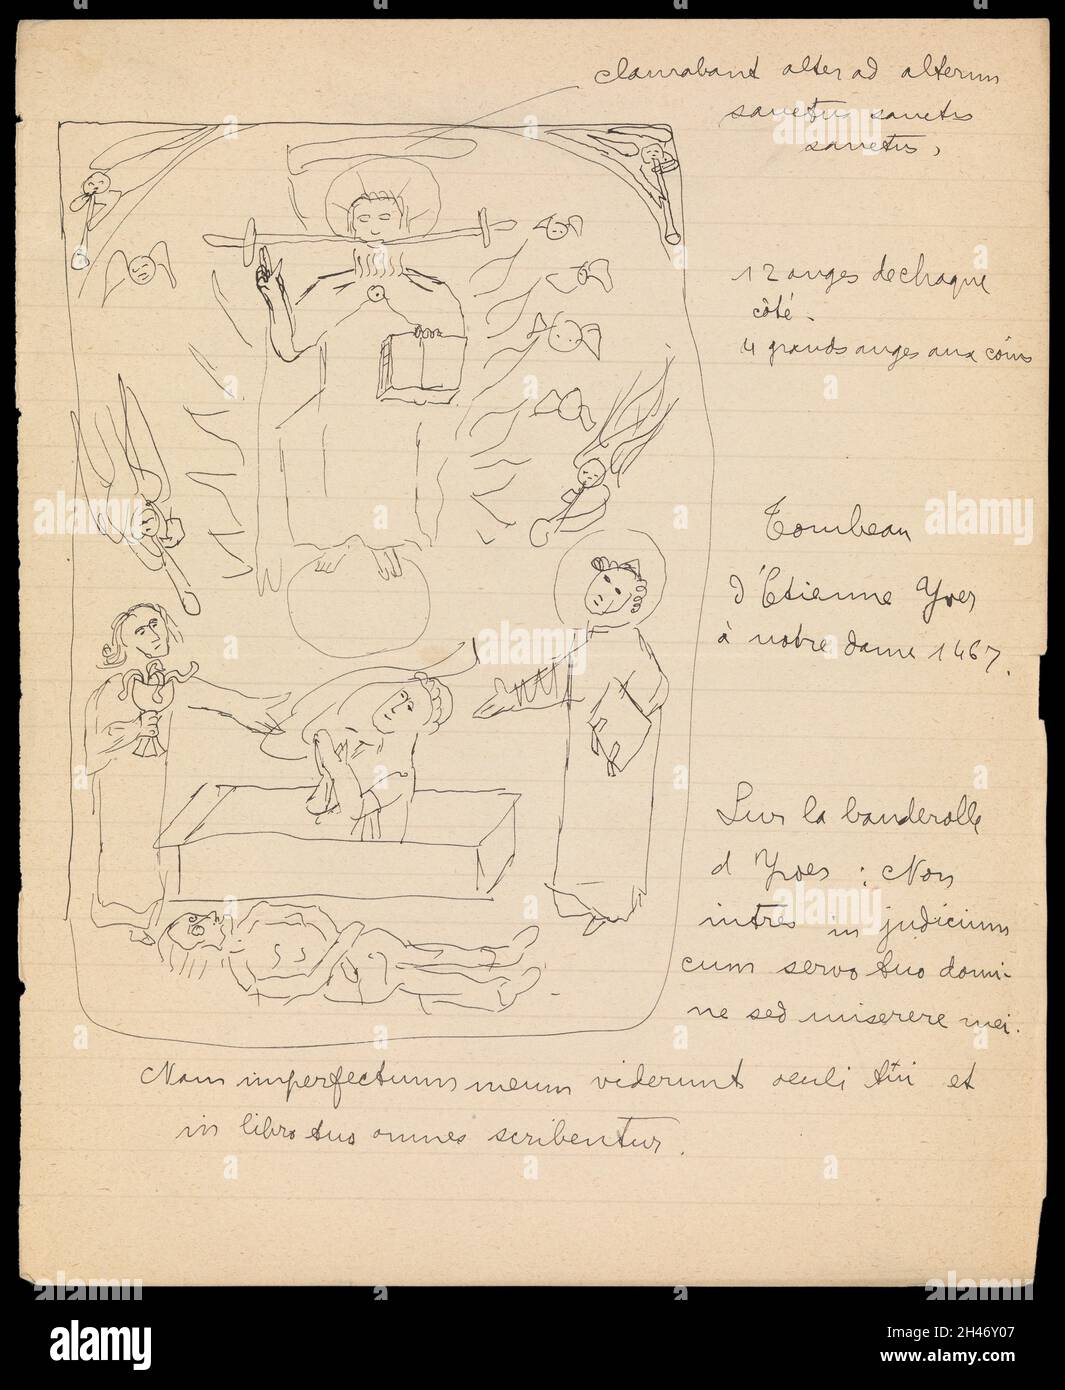 clamabant alter ad alterum
sanctus sanctus
sanctus,
12 anges de chaque
côté.
4 grands anges aux coins
Tombeau
d'Etienne Yver
à notre dame 1467.
Sur la banderolle
d'Yves : Non
intres in judicium
cum servo tuo domi-
ne sed miserere mei.
Nam imperfectum meum viderunt oculi tui et
in libro tuo omnes scribentur.
alamy
Image ID: 2H46Y07
www.alamy.com